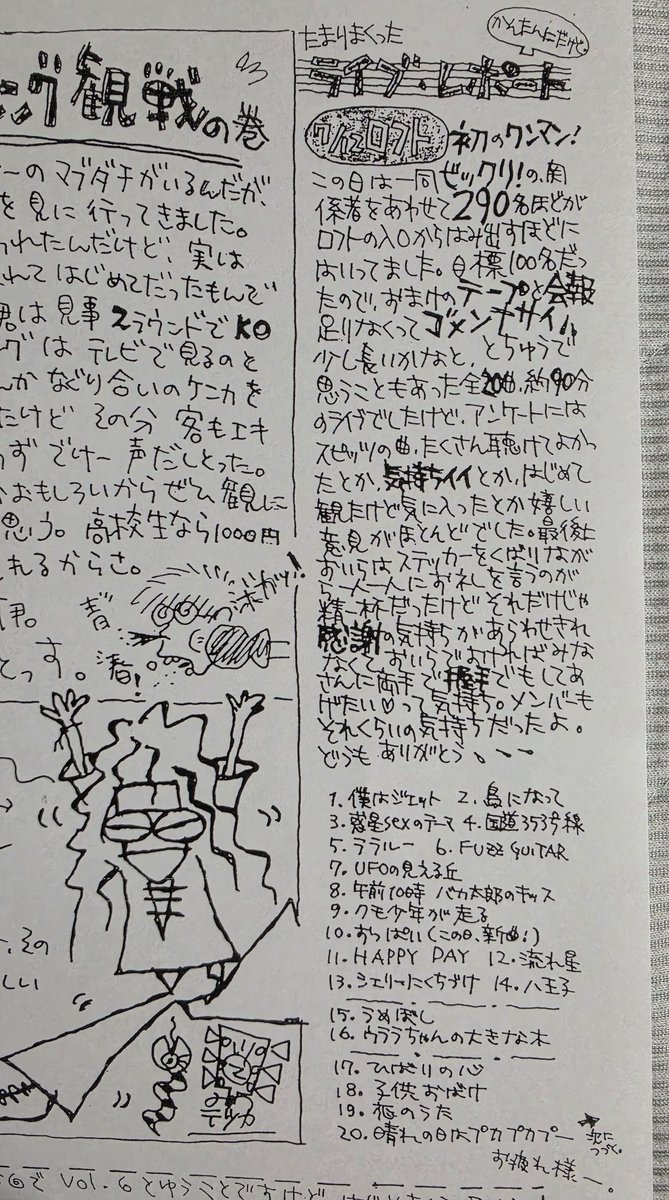 ング観戦の巻
ーのマブダチがいるんだが、
を見に行ってきました。
われたんだけど、実は
れてはじめてだったもんで
君は見事2ラウンドでKO
グはテレビで見るのと
んかなぐり合いのケンカを
たけどその分客もエキ
ずでけー声だしとった。
おもしろいからぜひ観に
思う。高校生なら1000円
れるからさ。
とっす。
その
しい
かんたんにだけど。
たまりまくった
ライブ・レポート
ロフト 初のワンマン!
この日は一同ビックリ!の、関
係者をあわせて290名ほどが
ロフトの入口からはみ出すほどに
はいってました。目標100名だっ
たので、おまけのテープと会報
足りなくってゴメンナサイ。
少し長いかなと、とちゅうで
思うこともあった全20曲、約90分
のライブでしたけど、アンケートには
スピッツの曲、たくさん聴けてよかっ
たとか、気持ちイイとか、はじめて
観たけど気に入ったとか嬉しい
意見がほとんどでした。最後に
おいらはステッカーをくばりなが
ら一人一人にお礼を言うのが
精一杯だったけどそれだけじゃ
感謝の気持ちがあらわせきれ
なくて、おいらでよければみな
さんに両手で握手でもしてあ
げたい♡って気持ち。メンバーも
それくらいの気持ちだったよ。
どうもありがとう、ーー
1.僕はジェット 2.島になって
3.惑星sexのテーマ 4.国道353号線
5.ララルー 6.FUZZ GUITAR
7.UFOの見える丘
8.午前10時 バカ太郎のキッス
9.クモ少年が走る
10.おっぱい(この日、新曲!)
11.HAPPY DAY 12.流れ星
13.シェリーにくちづけ 14.八王子
15.うめぼし
16.ウララちゃんの大きな木
17.ひばりの心
18.子供おばけ
19.恋のうた
20.晴れの日はプカプカプー
次につづく。
お疲れ様ー。
vol.6とゆうことですけど